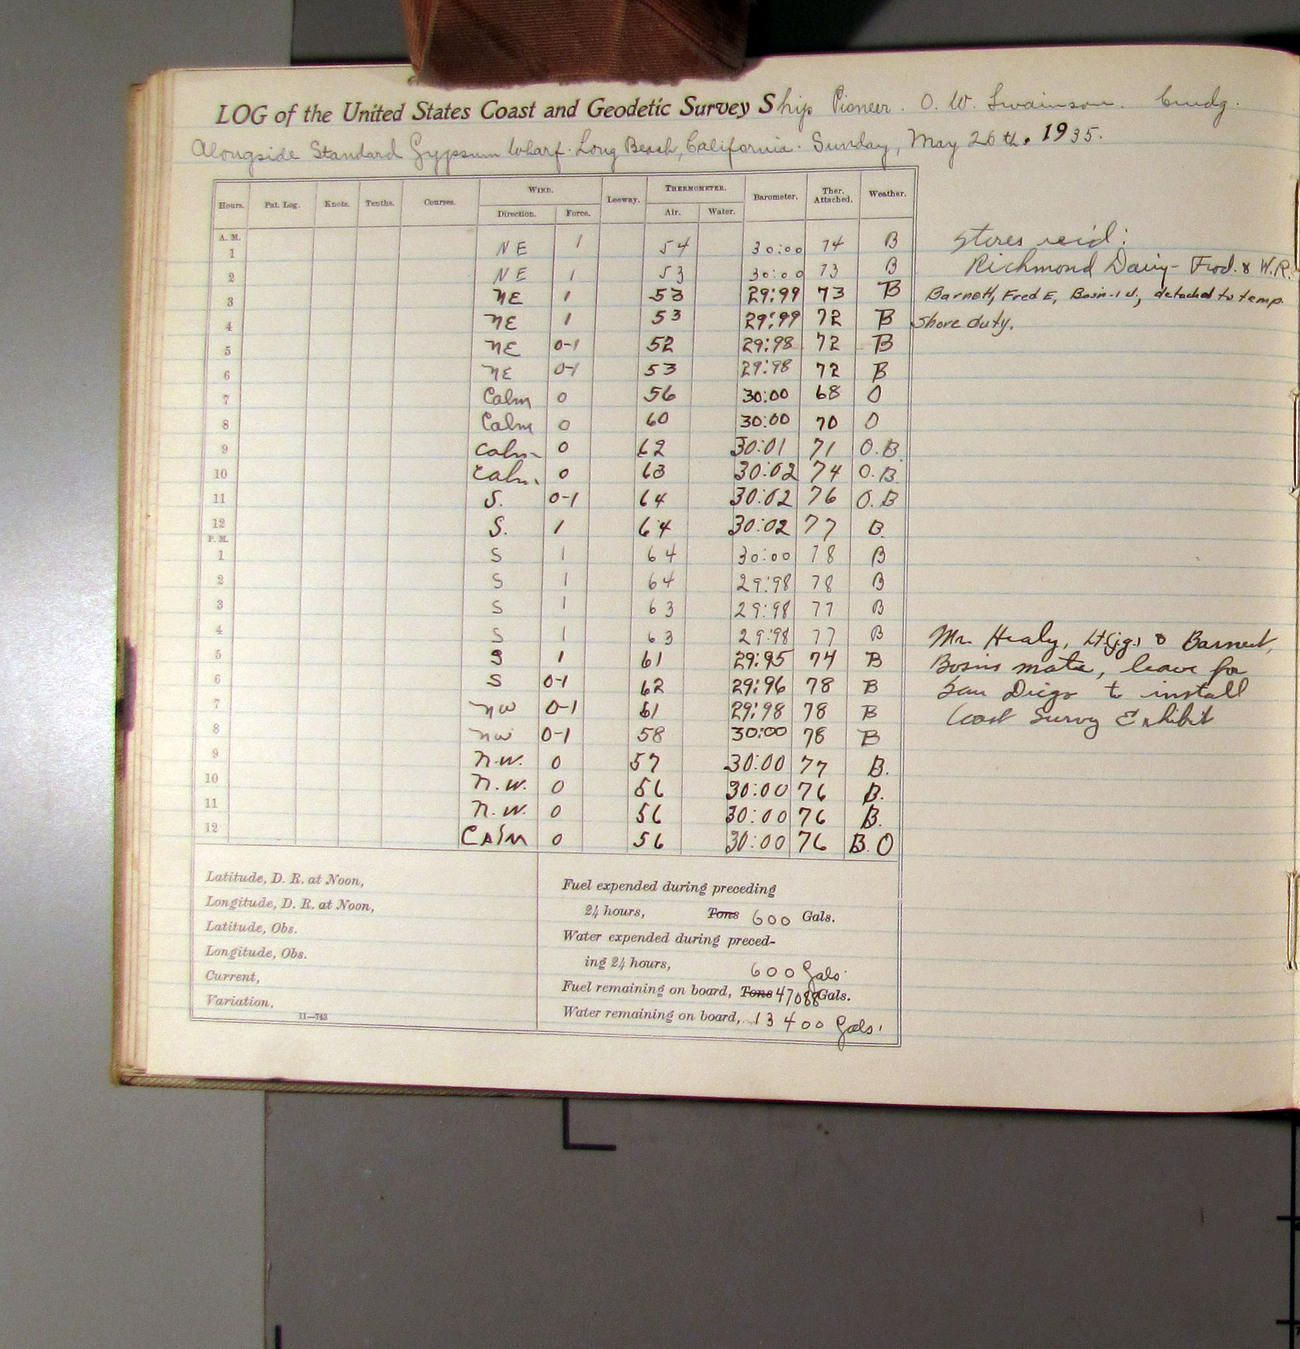 LOG of the United States Coast and Geodetic Survey Ship Pioneer. O. W. Swainson. Cmdg.
Alongside Standard Gypsum Wharf. Long Beach, California. Sunday, May 26th. 1935.
Hours. Pat. Log. Knots. Tenths. Courses. WIND. Leeway. THERMOMETER. Barometer. Ther. Attached. Weather.
Direction. Force. Air. Water.
A. M.
1 NE 1 54 30:00 74 B
2 NE 1 53 30:00 73 B
3 NE 1 53 29:99 73 B
4 NE 1 53 29:99 72 B
5 NE 0-1 52 29:98 72 B
6 NE 0-1 53 29:98 72 B
7 Calm 0 56 30:00 68 O
8 Calm 0 60 30:00 70 O
9 calm 0 62 30:01 71 O.B.
10 calm. 0 63 30:02 74 O.B.
11 S. 0-1 64 30:02 76 O.B
12 S. 1 64 30:02 77 B.
P. M.
1 S 1 64 30:00 78 B
2 S 1 64 29:98 78 B
3 S 1 63 29:98 77 B
4 S 1 63 29:98 77 B
5 S 1 61 29:95 74 B
6 S 0-1 62 29:96 78 B
7 NW 0-1 61 29:98 78 B
8 NW 0-1 58 30:00 78 B
9 N.W. 0 57 30:00 77 B.
10 N.W. 0 56 30:00 76 B.
11 N.W. 0 56 30:00 76 B.
12 CAlm 0 56 30:00 76 B.O
Stores rec'd:
Richmond Dairy- Prod. & W.R.
Barnett, Fred E, Bosn-1 cl, detached to temp.
shore duty.
Mr. Healy, Lt(jg) & Barnett,
Bosins mate, leave for
San Diego to install
Coast Survey Exhibit
Latitude, D. R. at Noon,
Longitude, D. R. at Noon,
Latitude, Obs.
Longitude, Obs.
Current,
Variation.
11—743
Fuel expended during preceding
24 hours, Tons 600 Gals.
Water expended during preced-
ing 24 hours, 600 Gals.
Fuel remaining on board, Tons 47088 Gals.
Water remaining on board, 13400 Gals.